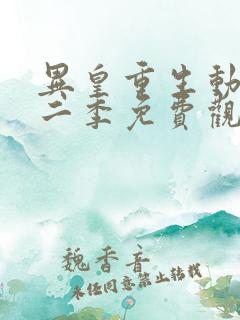 異皇重生動
二季免費觀
魏香音
未经同意禁止转载